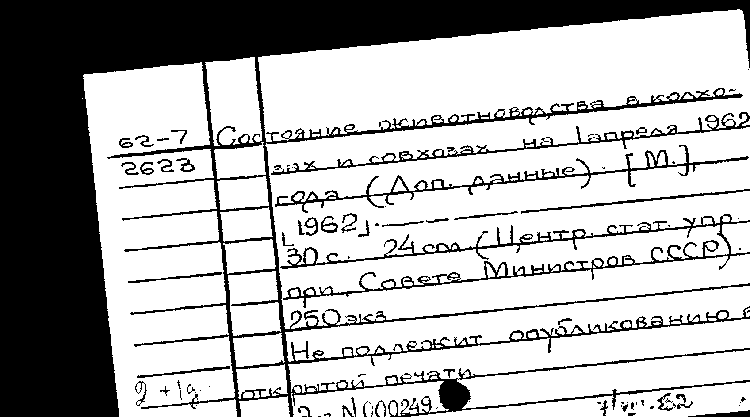 62-7 Состояние животноводства в колхо-
2623 зах и совхозах на 1 апреля 1962
года (Доп. данные). [М.],
[1962].
30 с. 24 см (Центр. стат. упр.
при Совете Министров СССР).
250 экз.
Не подлежит опубликованию в
открытой печати
2 + 1д
N 000249